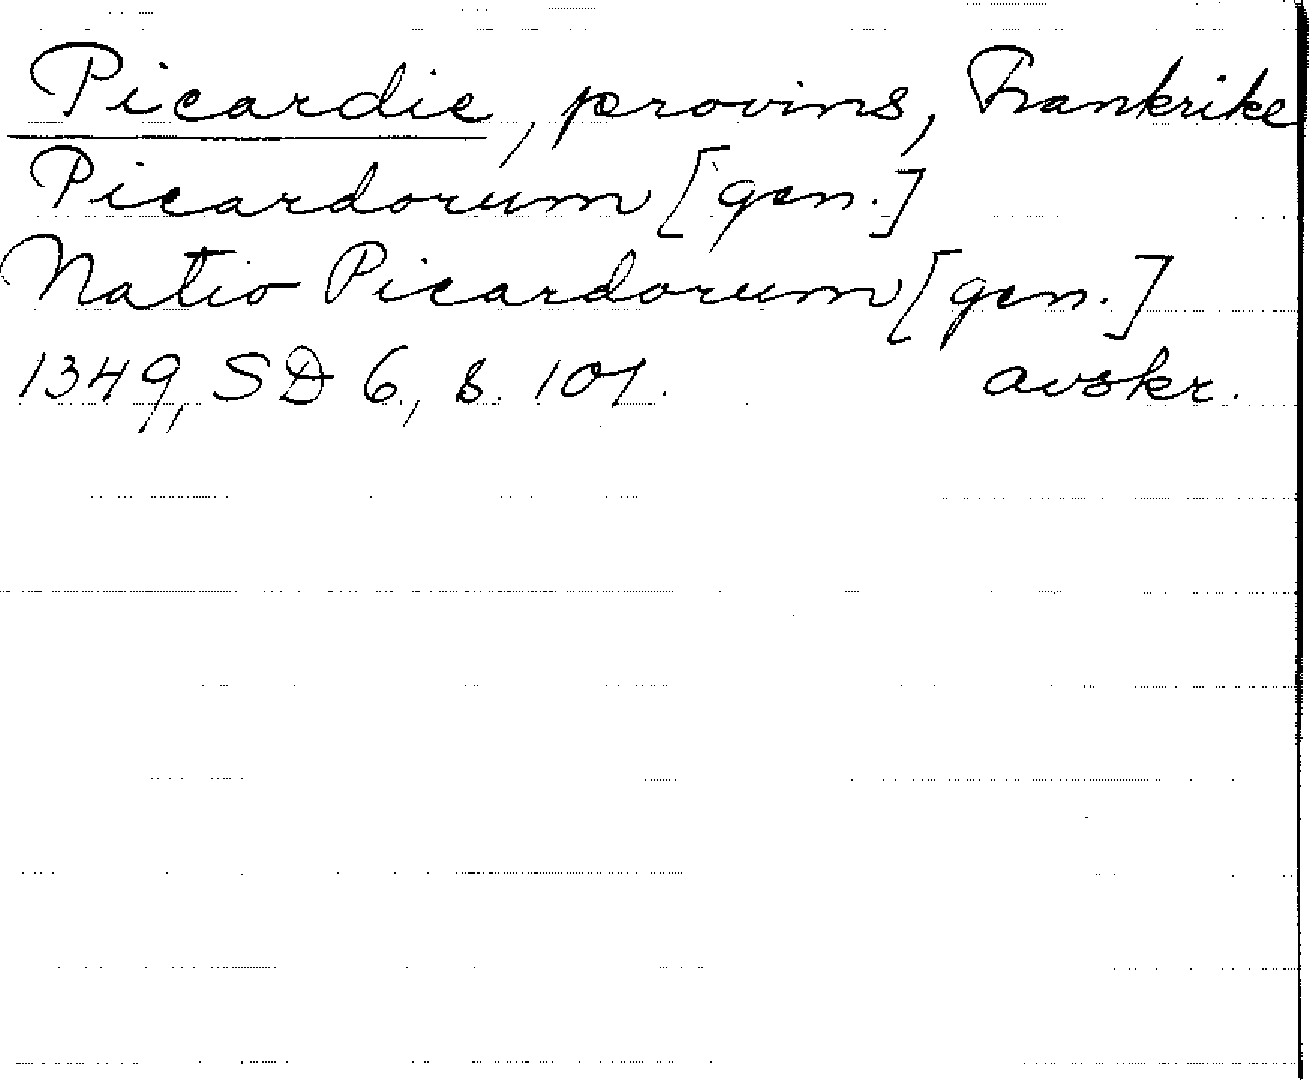 Picardie, provins, Frankrike
Picardorum [gen.]
Natio Picardorum [gen.]
1349, SD 6, s. 101. avskr.